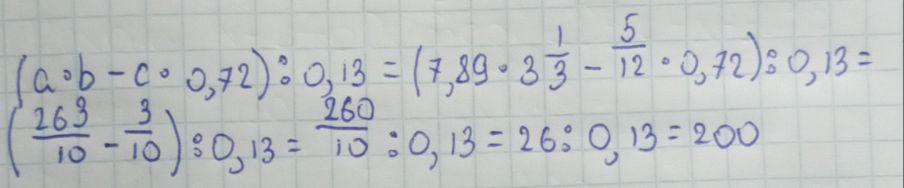 (a·b-c·0,72):0,13=(7,89·3 1/3 - 5/12·0,72):0,13=
(263/10 - 3/10):0,13=260/10:0,13=26:0,13=200